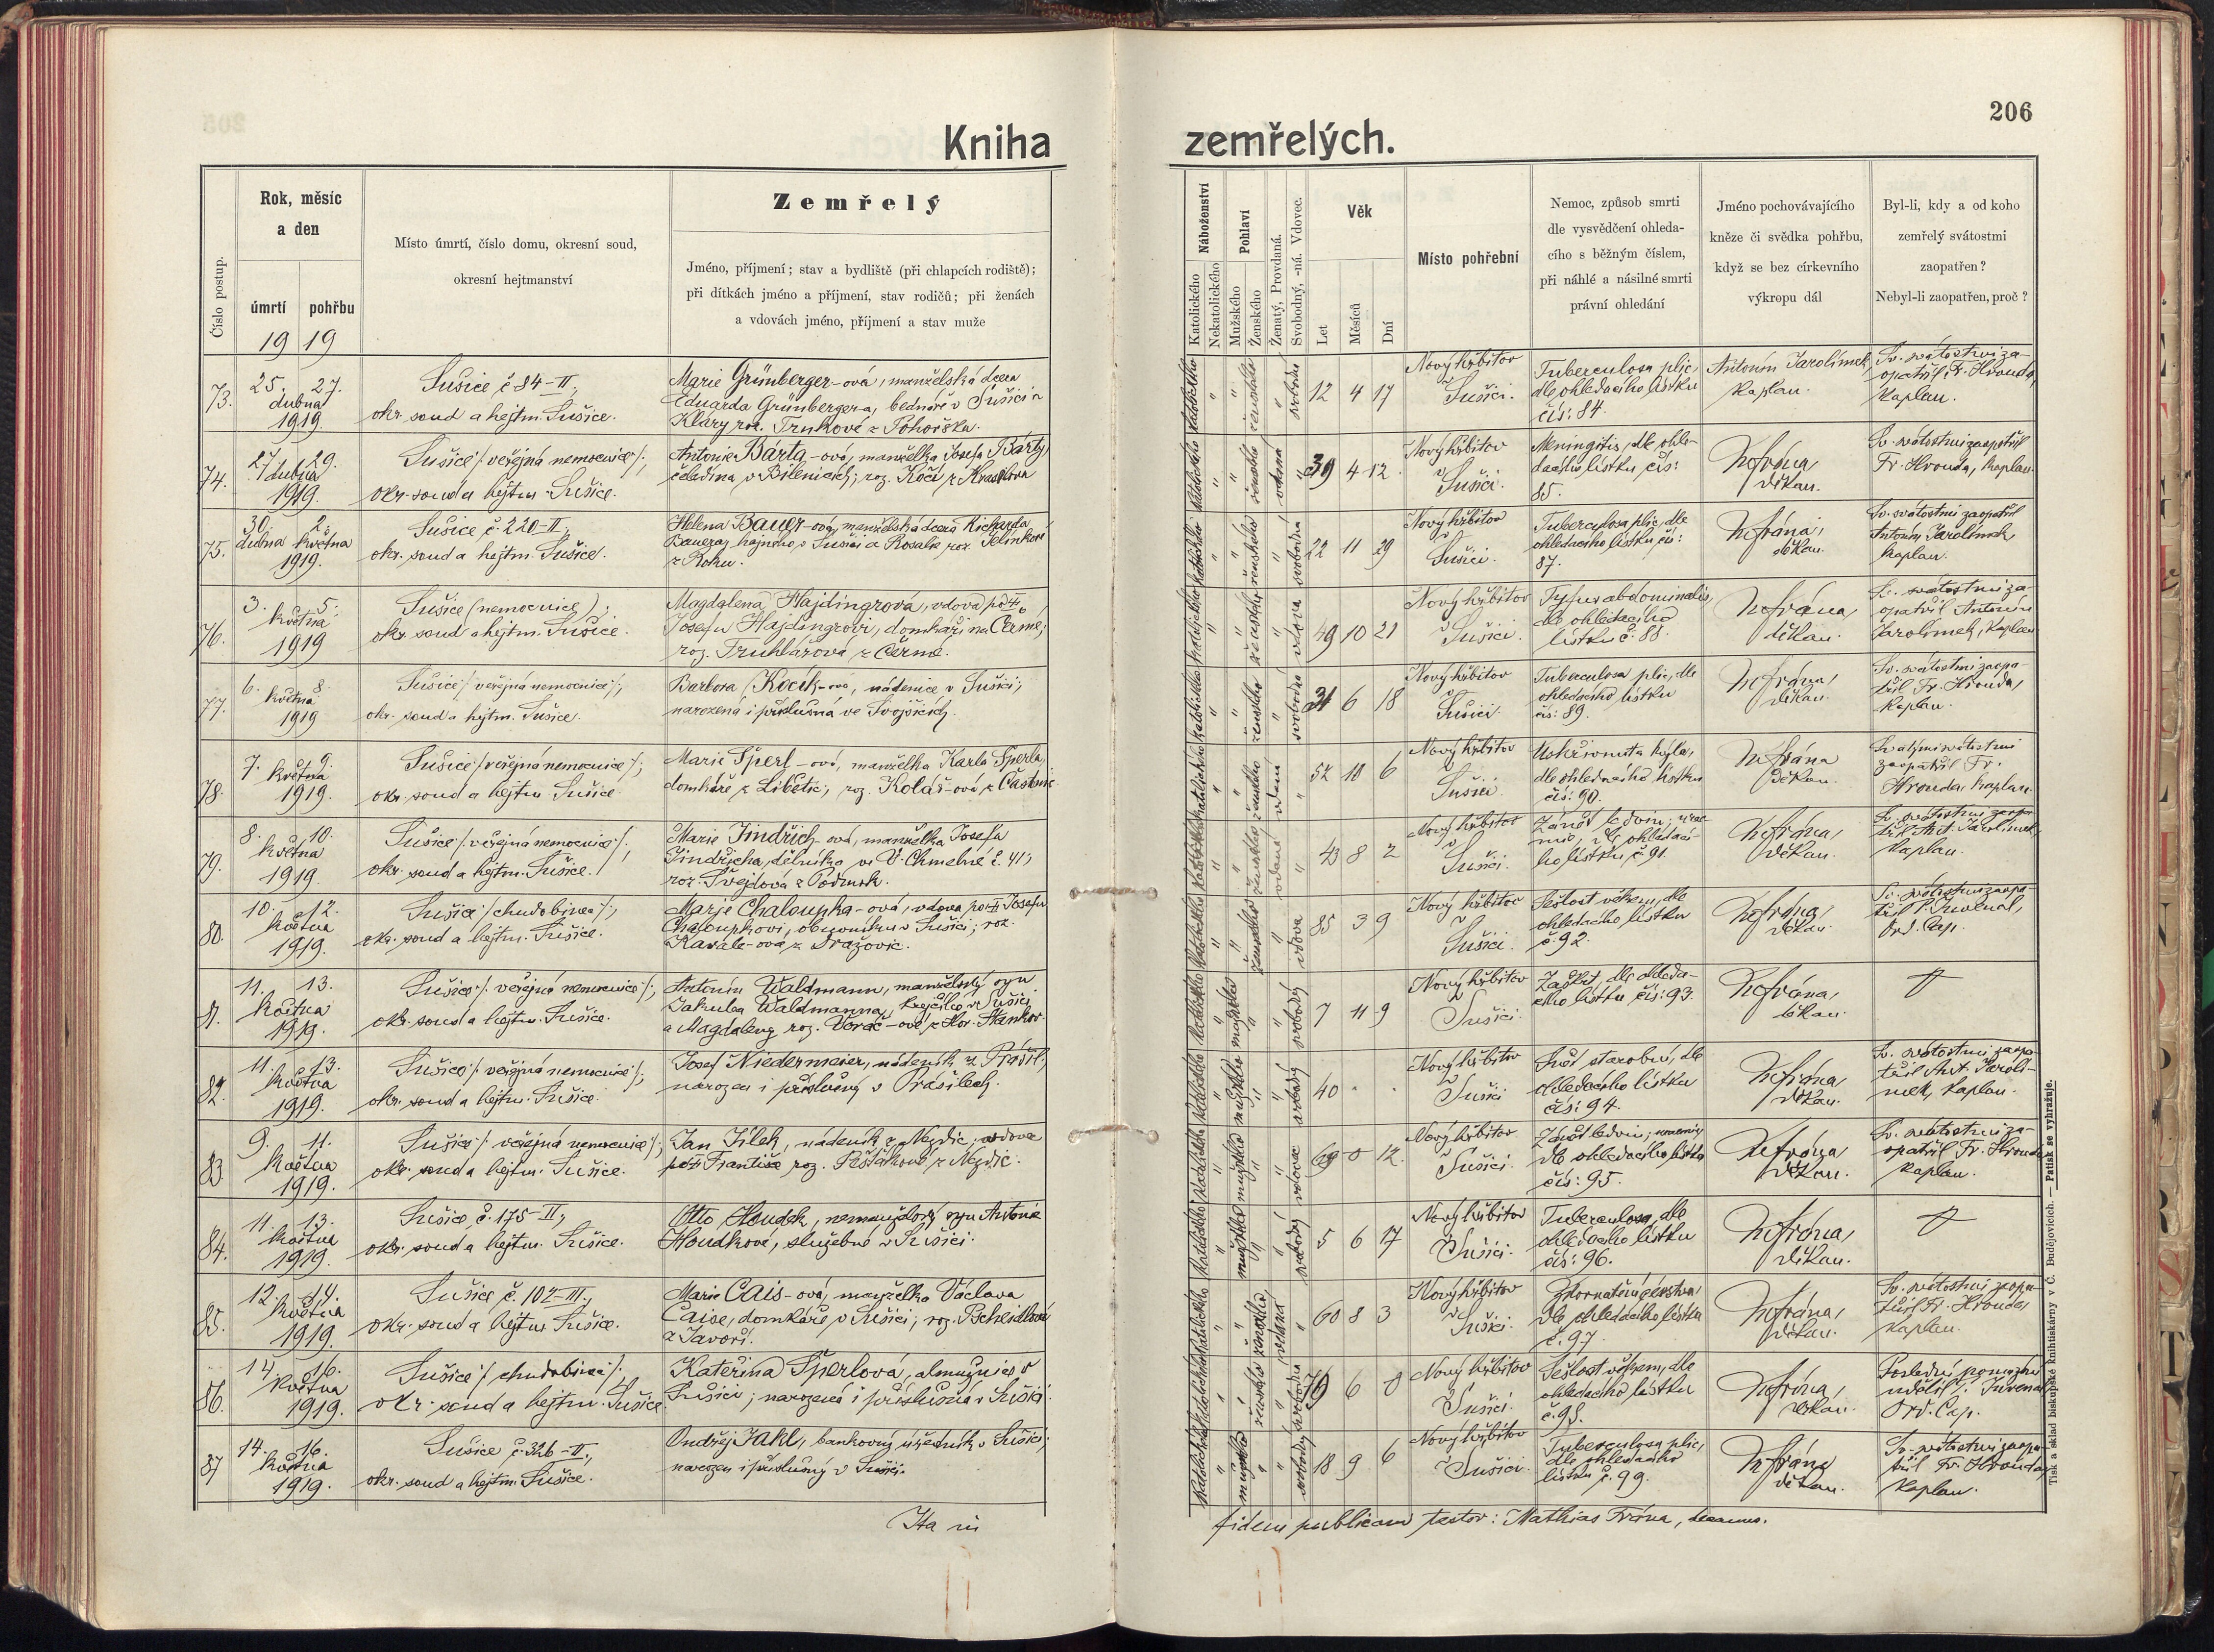 206
Kniha zemřelých.
Číslo postup.
Rok, měsíc
a den
úmrtí pohřbu
19 19
Místo úmrtí, číslo domu, okresní soud,
okresní hejtmanství
Zemřelý
Jméno, příjmení; stav a bydliště (při chlapcích rodiště);
při dítkách jméno a příjmení, stav rodičů; při ženách
a vdovách jméno, příjmení a stav muže
Náboženství
Katolického
Nekatolického
Pohlaví
Mužského
Ženského
Ženatý, Provdaná.
Svobodný, -ná. Vdovec.
Věk
Let
Měsíců
Dní
Místo pohřební
Nemoc, způsob smrti
dle vysvědčení ohleda-
cího s běžným číslem,
při náhlé a násilné smrti
právní ohledání
Jméno pochovávajícího
kněze či svědka pohřbu,
když se bez církevního
výkropu dál
Byl-li, kdy a od koho
zemřelý svátostmi
zaopatřen?
Nebyl-li zaopatřen, proč?
73.
25. 27.
dubna
1919.
Sušice č 84-II.,
okr. soud a hejtm. Sušice.
Marie Grünberger-ová, manželská dcera
Eduarda Grünbergera, bednáře v Sušici a
Kláry roz. Trnkové z Pohorska.
katolického " ženského " svobodná
12 4 17
Nový hřbitov
v Sušici.
Tuberculosa plic,
dle ohledacího lístku
čís: 84.
Antonín Jarolímek,
kaplan.
Sv. svátostmi za-
opatřil Fr. Hrouda,
kaplan.
74.
27. 29.
dubna
1919.
Sušice /: veřejná nemocnice :/,
okr. soud a hejtm. Sušice.
Antonie Bárta-ová, manželka Josefa Bárty,
čeledína v Bílenicích; roz. Kočí z
39 4 12.
Nový hřbitov
v Sušici.
Meningitis, dle ohle-
dacího lístku čís:
85.
děkan.
Sv. svátostmi zaopatřil
Fr. Hrouda, kaplan.
75.
30. 2.
dubna května
1919.
Sušice č. 220-II.,
okr. soud a hejtm. Sušice.
Helena Bauer-ová, manželská dcera Richarda
Bauera, hajného v Sušici a Rosalie roz. Jelínkové
z Roku.
22 11 29
Nový hřbitov
v Sušici.
Tuberculosa plic, dle
ohledacího lístku čís:
87.
děkan.
Sv. svátostmi zaopatřil
Antonín Jarolímek,
kaplan.
76.
3. 5.
května
1919
Sušice (nemocnice),
okr. soud a hejtm. Sušice.
Magdalena Hajdingrová, vdova po
Josefu Hajdingrovi, domkáři na Čermé,
roz. Truhlářová z Čermé.
49 10 21
Nový hřbitov
v Sušici.
Tyfus abdominalis,
dle ohledacího
lístku č. 88.
děkan.
Sv. svátostmi za-
opatřil Antonín
Jarolímek, kaplan.
77.
6. 8.
května
1919
Sušice /: veřejná nemocnice :/,
okr. soud a hejtm. Sušice.
Barbora Kocík-ová, nádenice v Sušici;
narozená i příslušná ve Svojšicích.
31 6 18
Nový hřbitov
v Sušici.
Tuberculosa plic, dle
ohledacího lístku
čís: 89.
děkan.
Sv. svátostmi zaopa-
třil Fr. Hrouda,
kaplan.
78.
7. 9.
května
1919.
Sušice /: veřejná nemocnice :/,
okr. soud a hejtm. Sušice.
Marie Šperl-ová, manželka Karla Šperla,
domkáře z Libětic, roz. Kolář-ová z
52 10 6
Nový hřbitov
v Sušici.
Uskřinuta kýla,
dle ohledacího lístku
čís: 90.
děkan.
Svatými svátostmi
zaopatřil Fr.
Hrouda, kaplan.
79.
8. 10.
května
1919.
Sušice /: veřejná nemocnice :/,
okr. soud a hejtm. Sušice.
Marie Jindřich-ová, manželka Josefa
Jindřicha, dělníka ve V. Chmelné č. 41,
roz. Švejdová z
43 8 2
Nový hřbitov
v Sušici.
Zánět ledvin,
dle ohledací-
ho lístku č. 91.
děkan.
Sv. svátostmi zaopa-
třil Ant. Jarolímek,
kaplan.
80.
10. 12.
května
1919.
Sušice /: chudobinec :/,
okr. soud a hejtm. Sušice.
Marie Chaloupka-ová, vdova po Josefu
Chaloupkovi, obuvníku v Sušici; roz.
Kavale-ová z Dražovic.
85 3 9
Nový hřbitov
v Sušici.
Sešlost věkem, dle
ohledacího lístku
č. 92.
děkan.
Sv. svátostmi zaopa-
třil P. Juvenal,
Ord. Cap.
81.
11. 13.
května
1919.
Sušice /: veřejná nemocnice :/,
okr. soud a hejtm. Sušice.
Antonín Waldmann, manželský syn
Jakuba Waldmanna, krejčího v Sušici
a Magdaleny roz. z Hor. Staňkov
7 11 9
Nový hřbitov
v Sušici.
Záškrt, dle ohleda-
cího lístku čís: 93.
děkan.
82.
11. 13.
května
1919.
Sušice /: veřejná nemocnice :/,
okr. soud a hejtm. Sušice.
Josef Niedermeier, nádeník z Prášil,
narozen i příslušný v Prášilech.
40 . .
Nový hřbitov
v Sušici
dle
ohledacího lístku
čís: 94.
děkan.
Sv. svátostmi zaopa-
třil Ant. Jarolí-
mek, kaplan.
83.
9. 11.
května
1919.
Sušice /: veřejná nemocnice :/,
okr. soud a hejtm. Sušice.
Jan Jílek, nádeník z Nezdic, vdovec
po Františce roz. z Nezdic.
69 0 12.
Nový hřbitov
v Sušici.
Zánět ledvin,
dle ohledacího lístku
čís: 95.
děkan.
Sv. svátostmi za-
opatřil Fr. Hrouda
kaplan.
84.
11. 13.
května
1919.
Sušice, č. 175-II.,
okr. soud a hejtm. Sušice.
Otto Houdek, nemanželský syn Antonie
Houdkové, služebné v Sušici.
5 6 17
Nový hřbitov
v Sušici.
Tuberculosa, dle
ohledacího lístku
čís: 96.
děkan.
85.
12. 14.
května
1919.
Sušice, č. 102-III.,
okr. soud a hejtm. Sušice.
Marie Cais-ová, manželka Václava
Caise, domkáře v Sušici, roz.
z Javoří.
60 8 3
Nový hřbitov
v Sušici.
dle ohledacího lístku
č. 97.
děkan.
Sv. svátostmi zaopa-
třil Fr. Hrouda,
kaplan.
86.
14. 16.
května
1919.
Sušice /: chudobinec :/,
okr. soud a hejtm. Sušice.
Kateřina Šperlová, almužnice v
Sušici; narozená i příslušná v Sušici.
79 6 0
Nový hřbitov
v Sušici.
Sešlost věkem, dle
ohledacího lístku
č. 98.
děkan.
Poslední pomazání
udělil P. Juvenal
Ord. Cap.
87
14. 16.
května
1919.
Sušice č. 326-II.,
okr. soud a hejtm. Sušice.
Ondřej Jakl, bankovní úředník v Sušici;
narozen i příslušný v Sušici.
18 9 6
Nový hřbitov
v Sušici.
Tuberculosa plic,
dle ohledacího
lístku č. 99.
děkan.
Sv. svátostmi zaopa-
třil Fr. Hrouda
kaplan.
Ita in
fidem publicam testor: Mathias Frána, decanus.
Tisk a sklad biskupské knihtiskárny v Č. Budějovicích. — Patisk se vyhražuje.